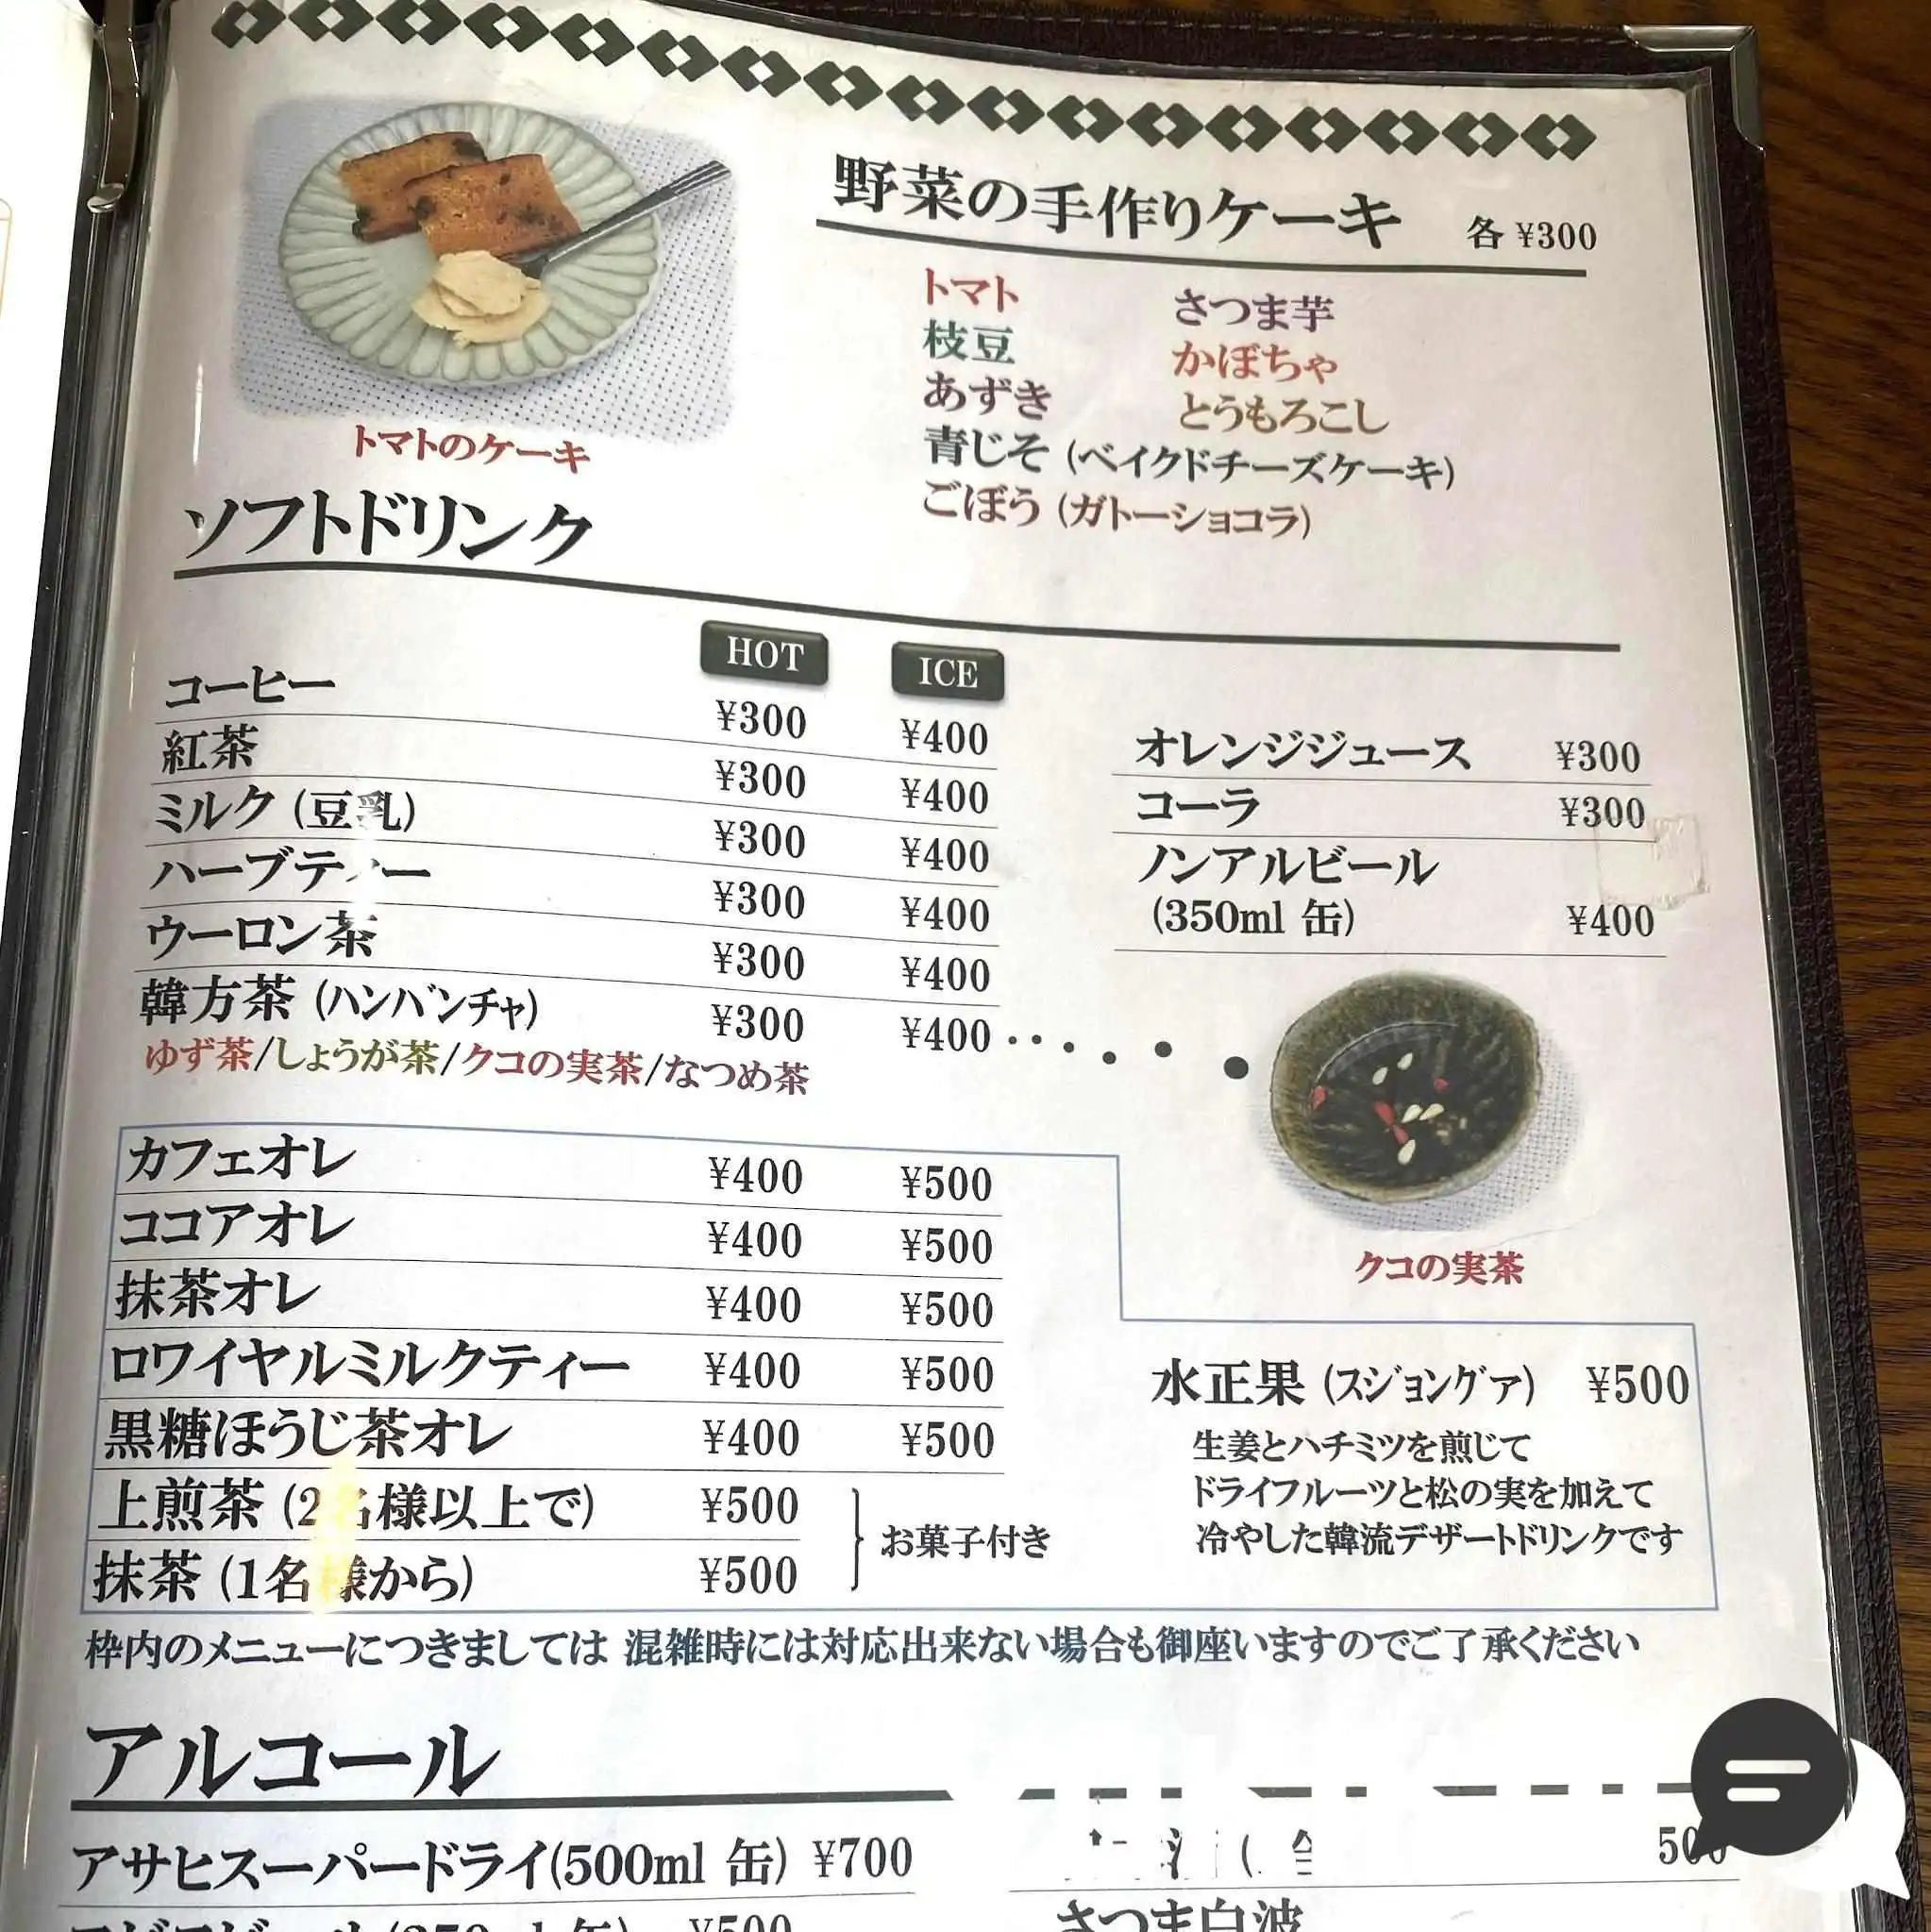 野菜の手作りケーキ 各 ¥300
トマト さつま芋
枝豆 かぼちゃ
あずき とうもろこし
青じそ (ベイクドチーズケーキ)
ごぼう (ガトーショコラ)
トマトのケーキ
ソフトドリンク
HOT ICE
コーヒー ¥300 ¥400
紅茶 ¥300 ¥400
ミルク (豆乳) ¥300 ¥400
ハーブティー ¥300 ¥400
ウーロン茶 ¥300 ¥400
韓方茶 (ハンバンチャ) ¥300 ¥400
ゆず茶/しょうが茶/クコの実茶/なつめ茶
オレンジジュース ¥300
コーラ ¥300
ノンアルビール
(350ml 缶) ¥400
クコの実茶
カフェオレ ¥400 ¥500
ココアオレ ¥400 ¥500
抹茶オレ ¥400 ¥500
ロワイヤルミルクティー ¥400 ¥500
黒糖ほうじ茶オレ ¥400 ¥500
上煎茶 (2名様以上で) ¥500
抹茶 (1名様から) ¥500
お菓子付き
水正果 (スジョングァ) ¥500
生姜とハチミツを煎じて
ドライフルーツと松の実を加えて
冷やした韓流デザートドリンクです
枠内のメニューにつきましては 混雑時には対応出来ない場合も御座いますのでご了承ください
アルコール
アサヒスーパードライ(500ml 缶) ¥700
¥500
さつま白波